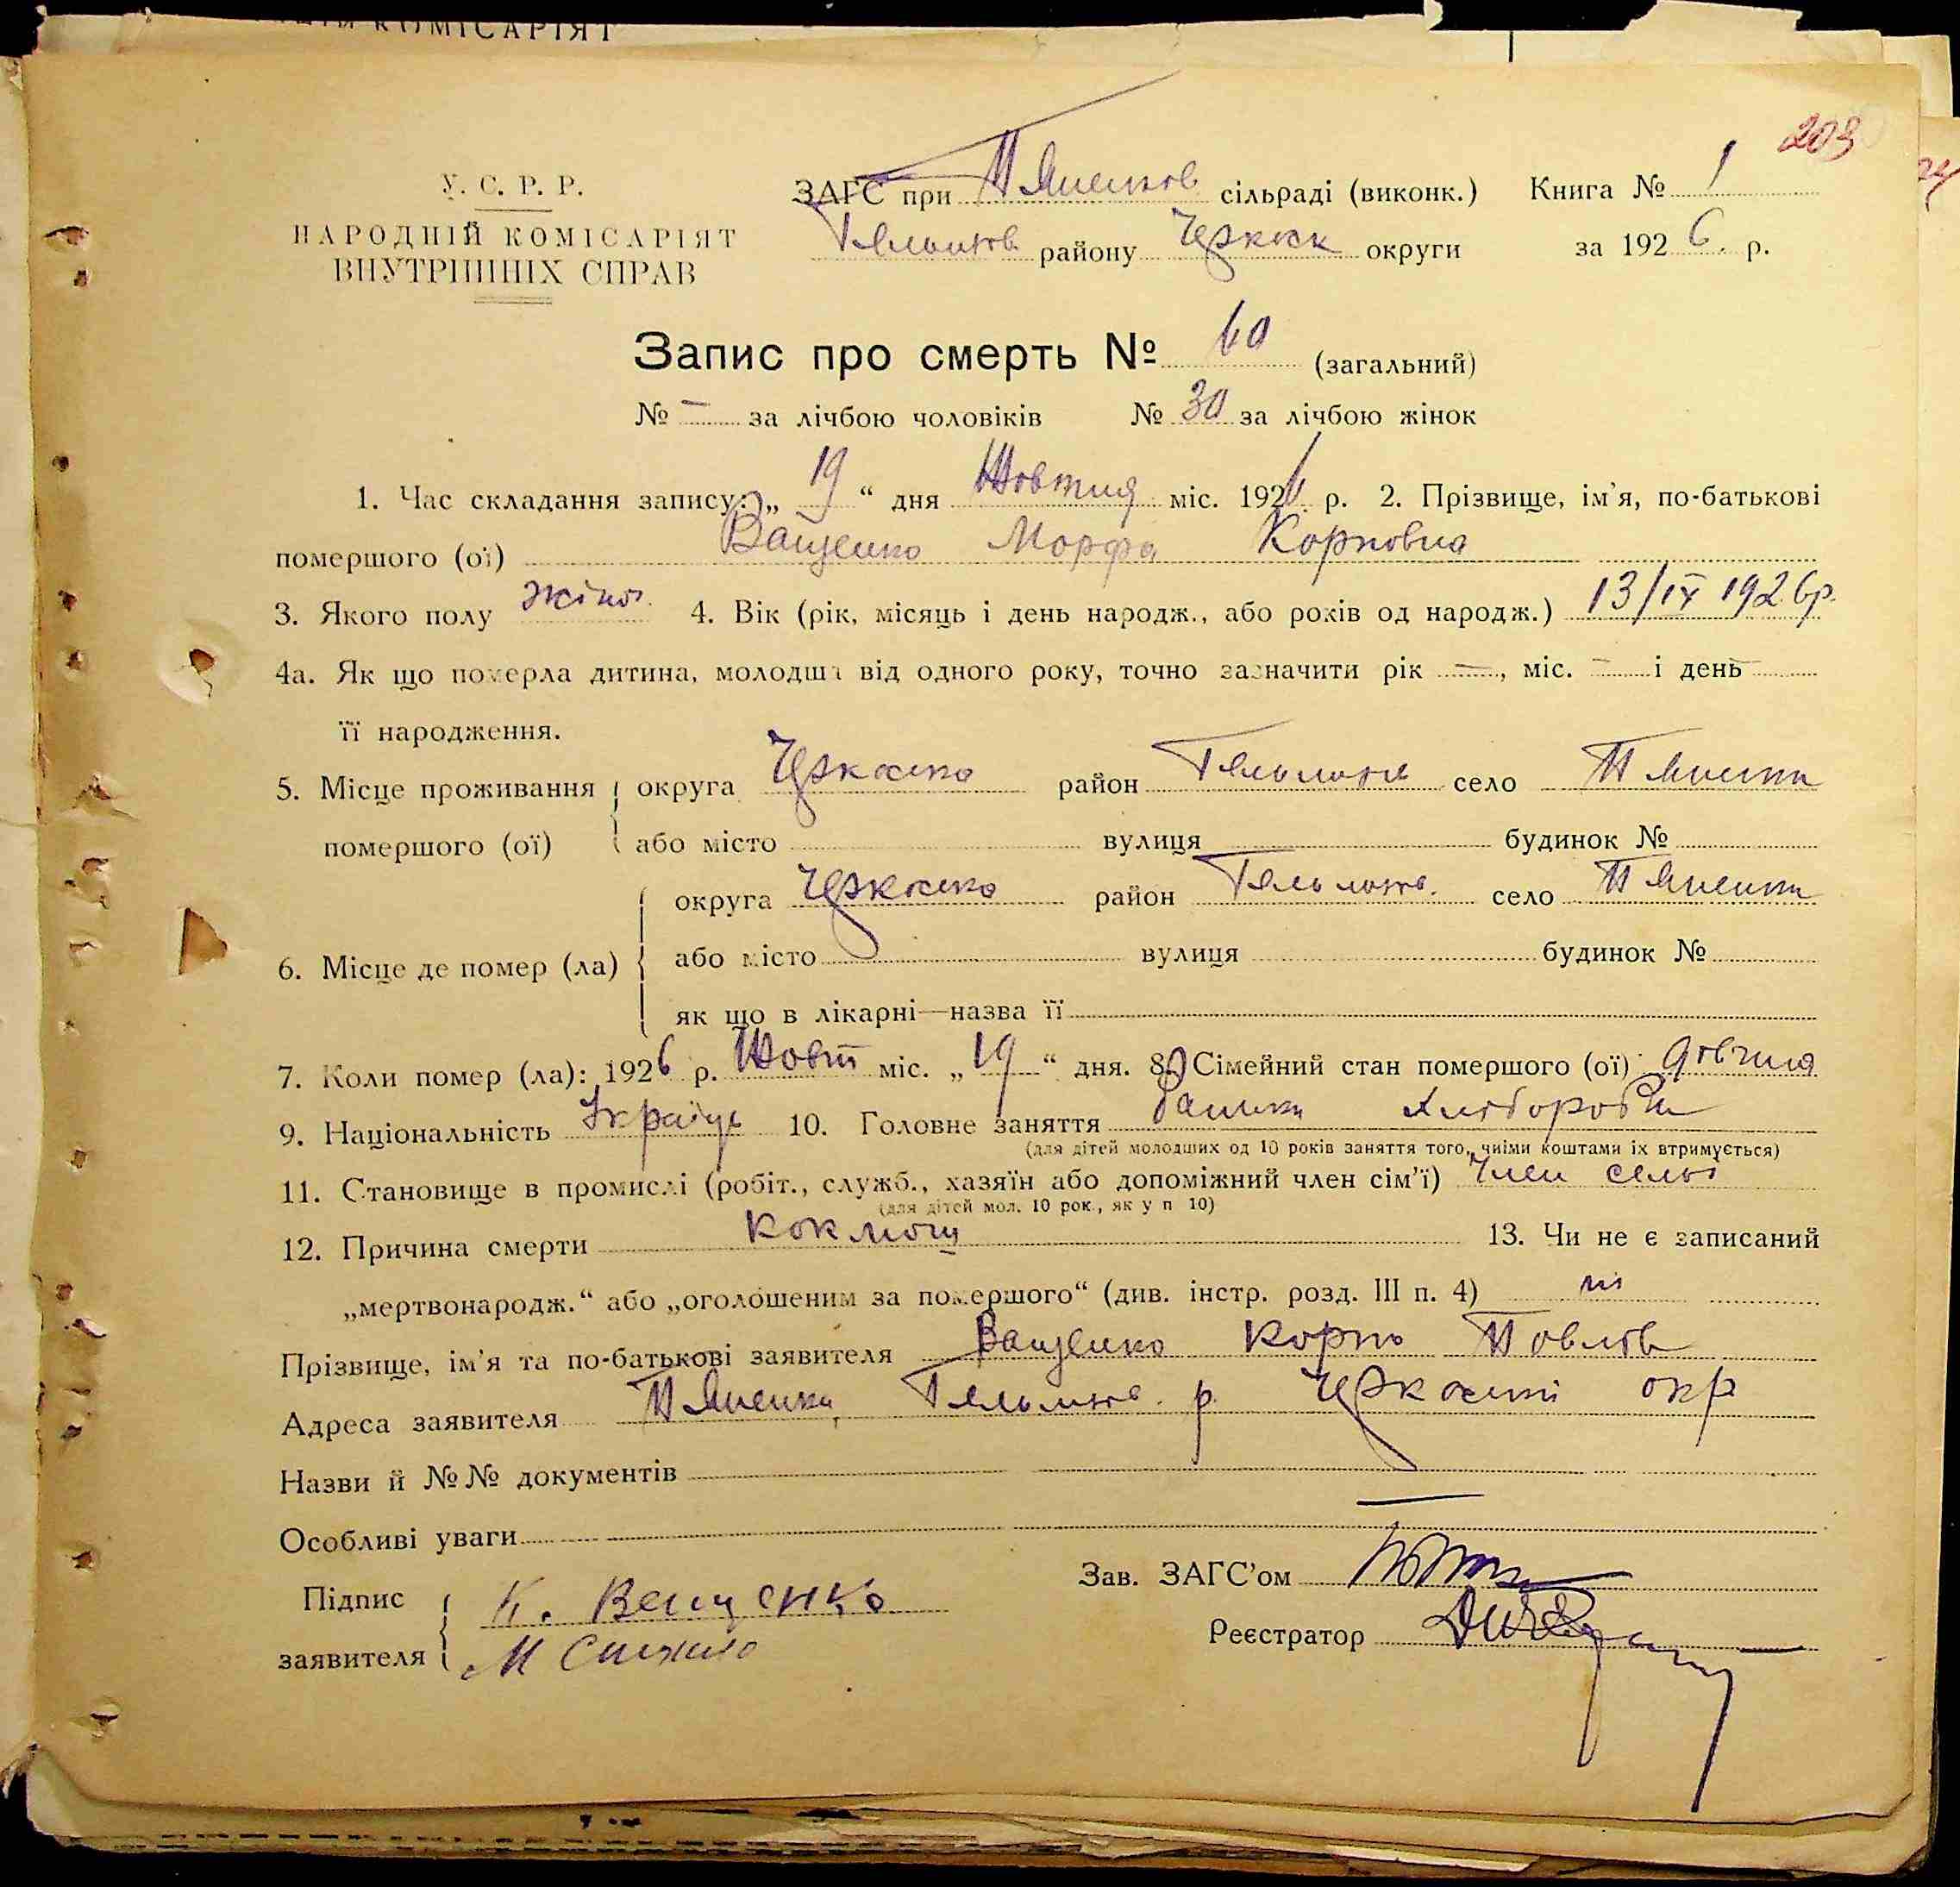 КОМІСАРІЯТ
203
У. С. Р. Р.
НАРОДНІЙ КОМІСАРІЯТ
ВНУТРІШНІХ СПРАВ
ЗАГС при сільраді (виконк.) Книга № 1
району Черкаск округи за 1926. р.
Запис про смерть № 60 (загальний)
№ – за лічбою чоловіків № 30 за лічбою жінок
1. Час складання запису: „ 19 “ дня Жовтня міс. 1926 р. 2. Прізвище, ім'я, по-батькові
помершого (ої) Ващенко Морфа Корповна
3. Якого полу жіноч. 4. Вік (рік, місяць і день народж., або років од народж.) 13/IX 1926р.
4а. Як що померла дитина, молодша від одного року, точно зазначити рік —, міс. – і день –
її народження.
5. Місце проживання округа Черкаська район село
помершого (ої) або місто вулиця будинок №
округа Черкаська район село
6. Місце де помер (ла) або місто вулиця будинок №
як що в лікарні—назва її
7. Коли помер (ла): 1926 р. Жовт міс. „ 19 “ дня. 8. Сімейний стан помершого (ої) дівчина
9. Національність Україц 10. Головне заняття хлібороби
(для дітей молодших од 10 років заняття того, чиїми коштами їх втримується)
11. Становище в промислі (робіт., служб., хазяїн або допоміжний член сім'ї) член семьї
(для дітей мол. 10 рок., як у п 10)
12. Причина смерти Коклюш 13. Чи не є записаний
„мертвонародж.“ або „оголошеним за помершого“ (див. інстр. розд. III п. 4) ні
Прізвище, ім'я та по-батькові заявителя Ващенко Корпо Повлов
Адреса заявителя р. Черкаської окр
Назви й №№ документів
Особливі уваги
Підпис К. Ващенко Зав. ЗАГС'ом
заявителя М Реєстратор